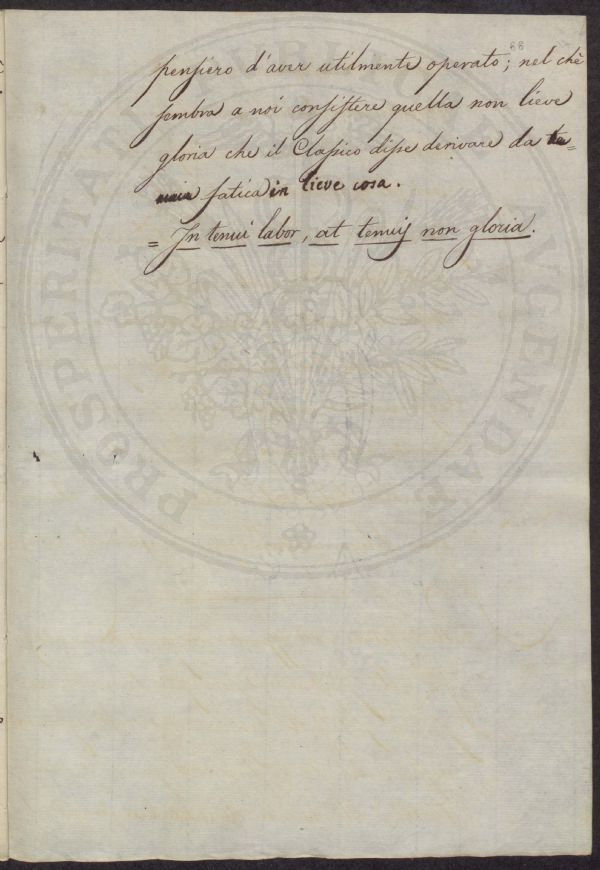 68
pensiero d'aver utilmente operato; nel chè
sembra a noi consistere quella non lieve
gloria che il Classico disse derivare da
fatica in lieve cosa.
= In tenui labor, at tenuis non gloria.
PROSPERITATI PUBLICAE AUGENDAE